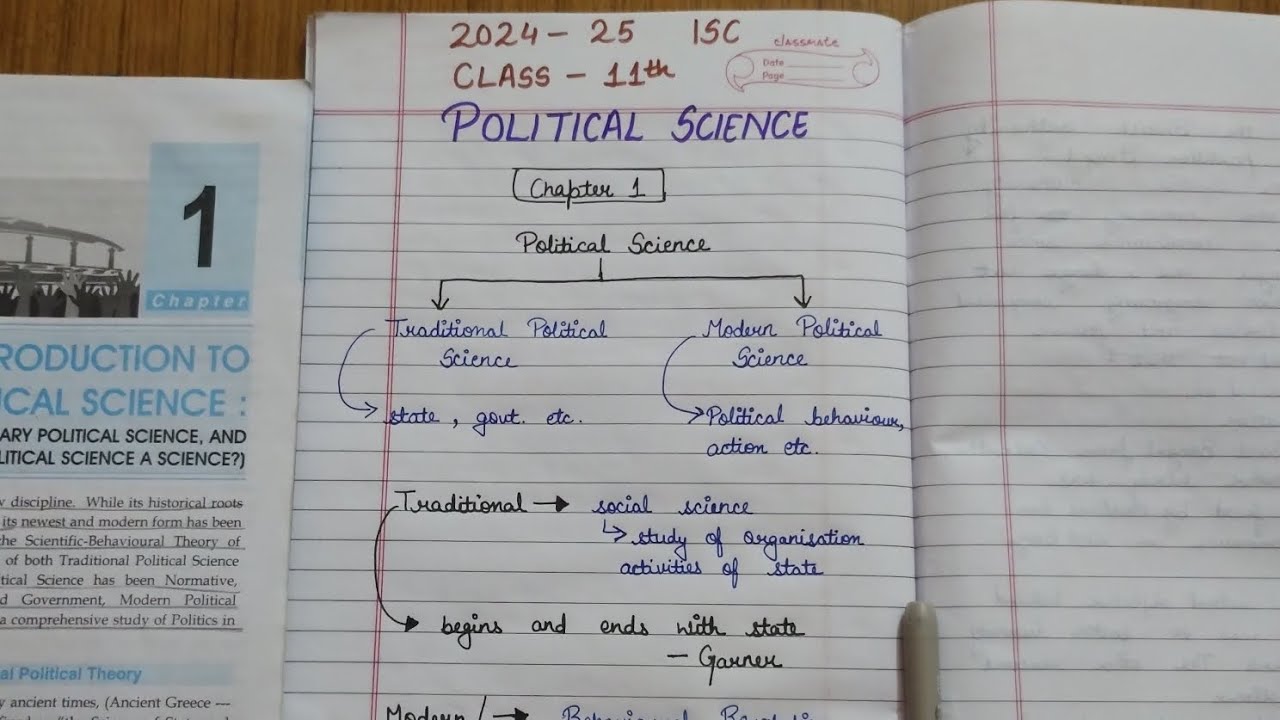 1
Chapter
RODUCTION TO
ICAL SCIENCE :
ARY POLITICAL SCIENCE, AND
LITICAL SCIENCE A SCIENCE?)
discipline. While its historical roots
its newest and modern form has been
the Scientific-Behavioural Theory of
of both Traditional Political Science
tical Science has been Normative,
d Government, Modern Political
a comprehensive study of Politics in
al Political Theory
y ancient times, (Ancient Greece —
2024 - 25 ISC
CLASS - 11th
classmate
Date
Page
POLITICAL SCIENCE
Chapter 1
Political Science
Traditional Political Science
Modern Political Science
state, govt. etc.
Political behaviour, action etc.
Traditional → social science
↳ study of organisation
activities of state
begins and ends with state
- Garner
Modern / → Behavioural